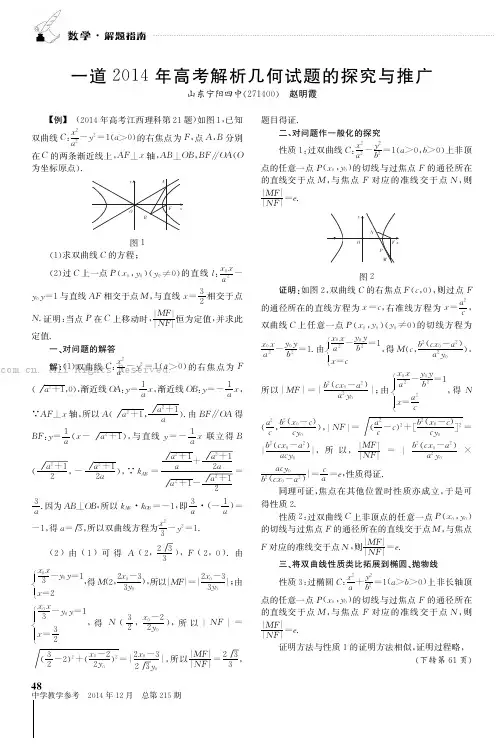 数学·解题指南
一道2014年高考解析几何试题的探究与推广
山东宁阳四中(271400) 赵明霞
【例】 (2014年高考江西理科第21题)如图1,已知
双曲线C:x²/a²-y²=1(a>0)的右焦点为F,点A,B分别
在C的两条渐近线上,AF⊥x轴,AB⊥OB,BF∥OA(O
为坐标原点).
图1
(1)求双曲线C的方程;
(2)过C上一点P(x₀,y₀)(y₀≠0)的直线l:x₀x/a²-
y₀y=1与直线AF相交于点M,与直线x=3/2相交于点
N.证明:当点P在C上移动时,|MF|/|NF|恒为定值,并求此
定值.
一、对问题的解答
解:(1)双曲线C:x²/a²-y²=1(a>0)的右焦点为F
(√(a²+1),0),渐近线OA:y=1/a x,渐近线OB:y=-1/a x,
∵AF⊥x轴,所以A(√(a²+1),√(a²+1)/a).由BF∥OA得
BF:y=1/a(x-√(a²+1)),与直线y=-1/a x联立得B
(√(a²+1)/2,-√(a²+1)/2a),∵k_AB=(√(a²+1)/a+√(a²+1)/2a)/(√(a²+1)-√(a²+1)/2)=
3/a.因为AB⊥OB,所以k_AB·k_OB=-1,即3/a·(-1/a)=
-1,得a=√3,所以双曲线方程为x²/3-y²=1.
(2)由(1)可得A(2,2√3/3),F(2,0).由
{x₀x/3-y₀y=1 x=2,得M(2,(2x₀-3)/3y₀),所以|MF|=|(2x₀-3)/3y₀|;由
{x₀x/3-y₀y=1 x=3/2,得N(3/2,(x₀-2)/2y₀),所以|NF|=
√((3/2-2)²+((x₀-2)/2y₀)²)=|(2x₀-3)/2√3y₀|,所以|MF|/|NF|=2√3/3,
题目得证.
二、对问题作一般化的探究
性质1:过双曲线C:x²/a²-y²/b²=1(a>0,b>0)上非顶
点的任意一点P(x₀,y₀)的切线与过焦点F的通径所在
的直线交于点M,与焦点F对应的准线交于点N,则
|MF|/|NF|=e.
图2
证明:如图2,双曲线C的右焦点F(c,0),则过点F
的通径所在的直线方程为x=c,右准线方程为x=a²/c,
双曲线C上任意一点P(x₀,y₀)(y₀≠0)的切线方程为
x₀x/a²-y₀y/b²=1.由{x₀x/a²-y₀y/b²=1 x=c,得M(c,b²(cx₀-a²)/a²y₀),
所以|MF|=|b²(cx₀-a²)/a²y₀|;由{x₀x/a²-y₀y/b²=1 x=a²/c,得N
(a²/c,b²(x₀-c)/cy₀),|NF|=√((a²/c-c)²+[b²(x₀-c)/cy₀]²)=
|b²(cx₀-a²)/acy₀|,所以,|MF|/|NF|=|b²(cx₀-a²)/a²y₀×
acy₀/b²(cx₀-a²)|=c/a=e,性质得证.
同理可证,焦点在其他位置时性质亦成立,于是可
得性质2.
性质2:过双曲线C上非顶点的任意一点P(x₀,y₀)
的切线与过焦点F的通径所在的直线交于点M,与焦点
F对应的准线交于点N,则|MF|/|NF|=e.
三、将双曲线性质类比拓展到椭圆、抛物线
性质3:过椭圆C:x²/a²+y²/b²=1(a>b>0)上非长轴顶
点的任意一点P(x₀,y₀)的切线与过焦点F的通径所在
的直线交于点M,与焦点F对应的准线交于点N,则
|MF|/|NF|=e.
证明方法与性质1的证明方法相似,证明过程略.
(下转第61页)
48
中学教学参考 2014年12月 总第215期